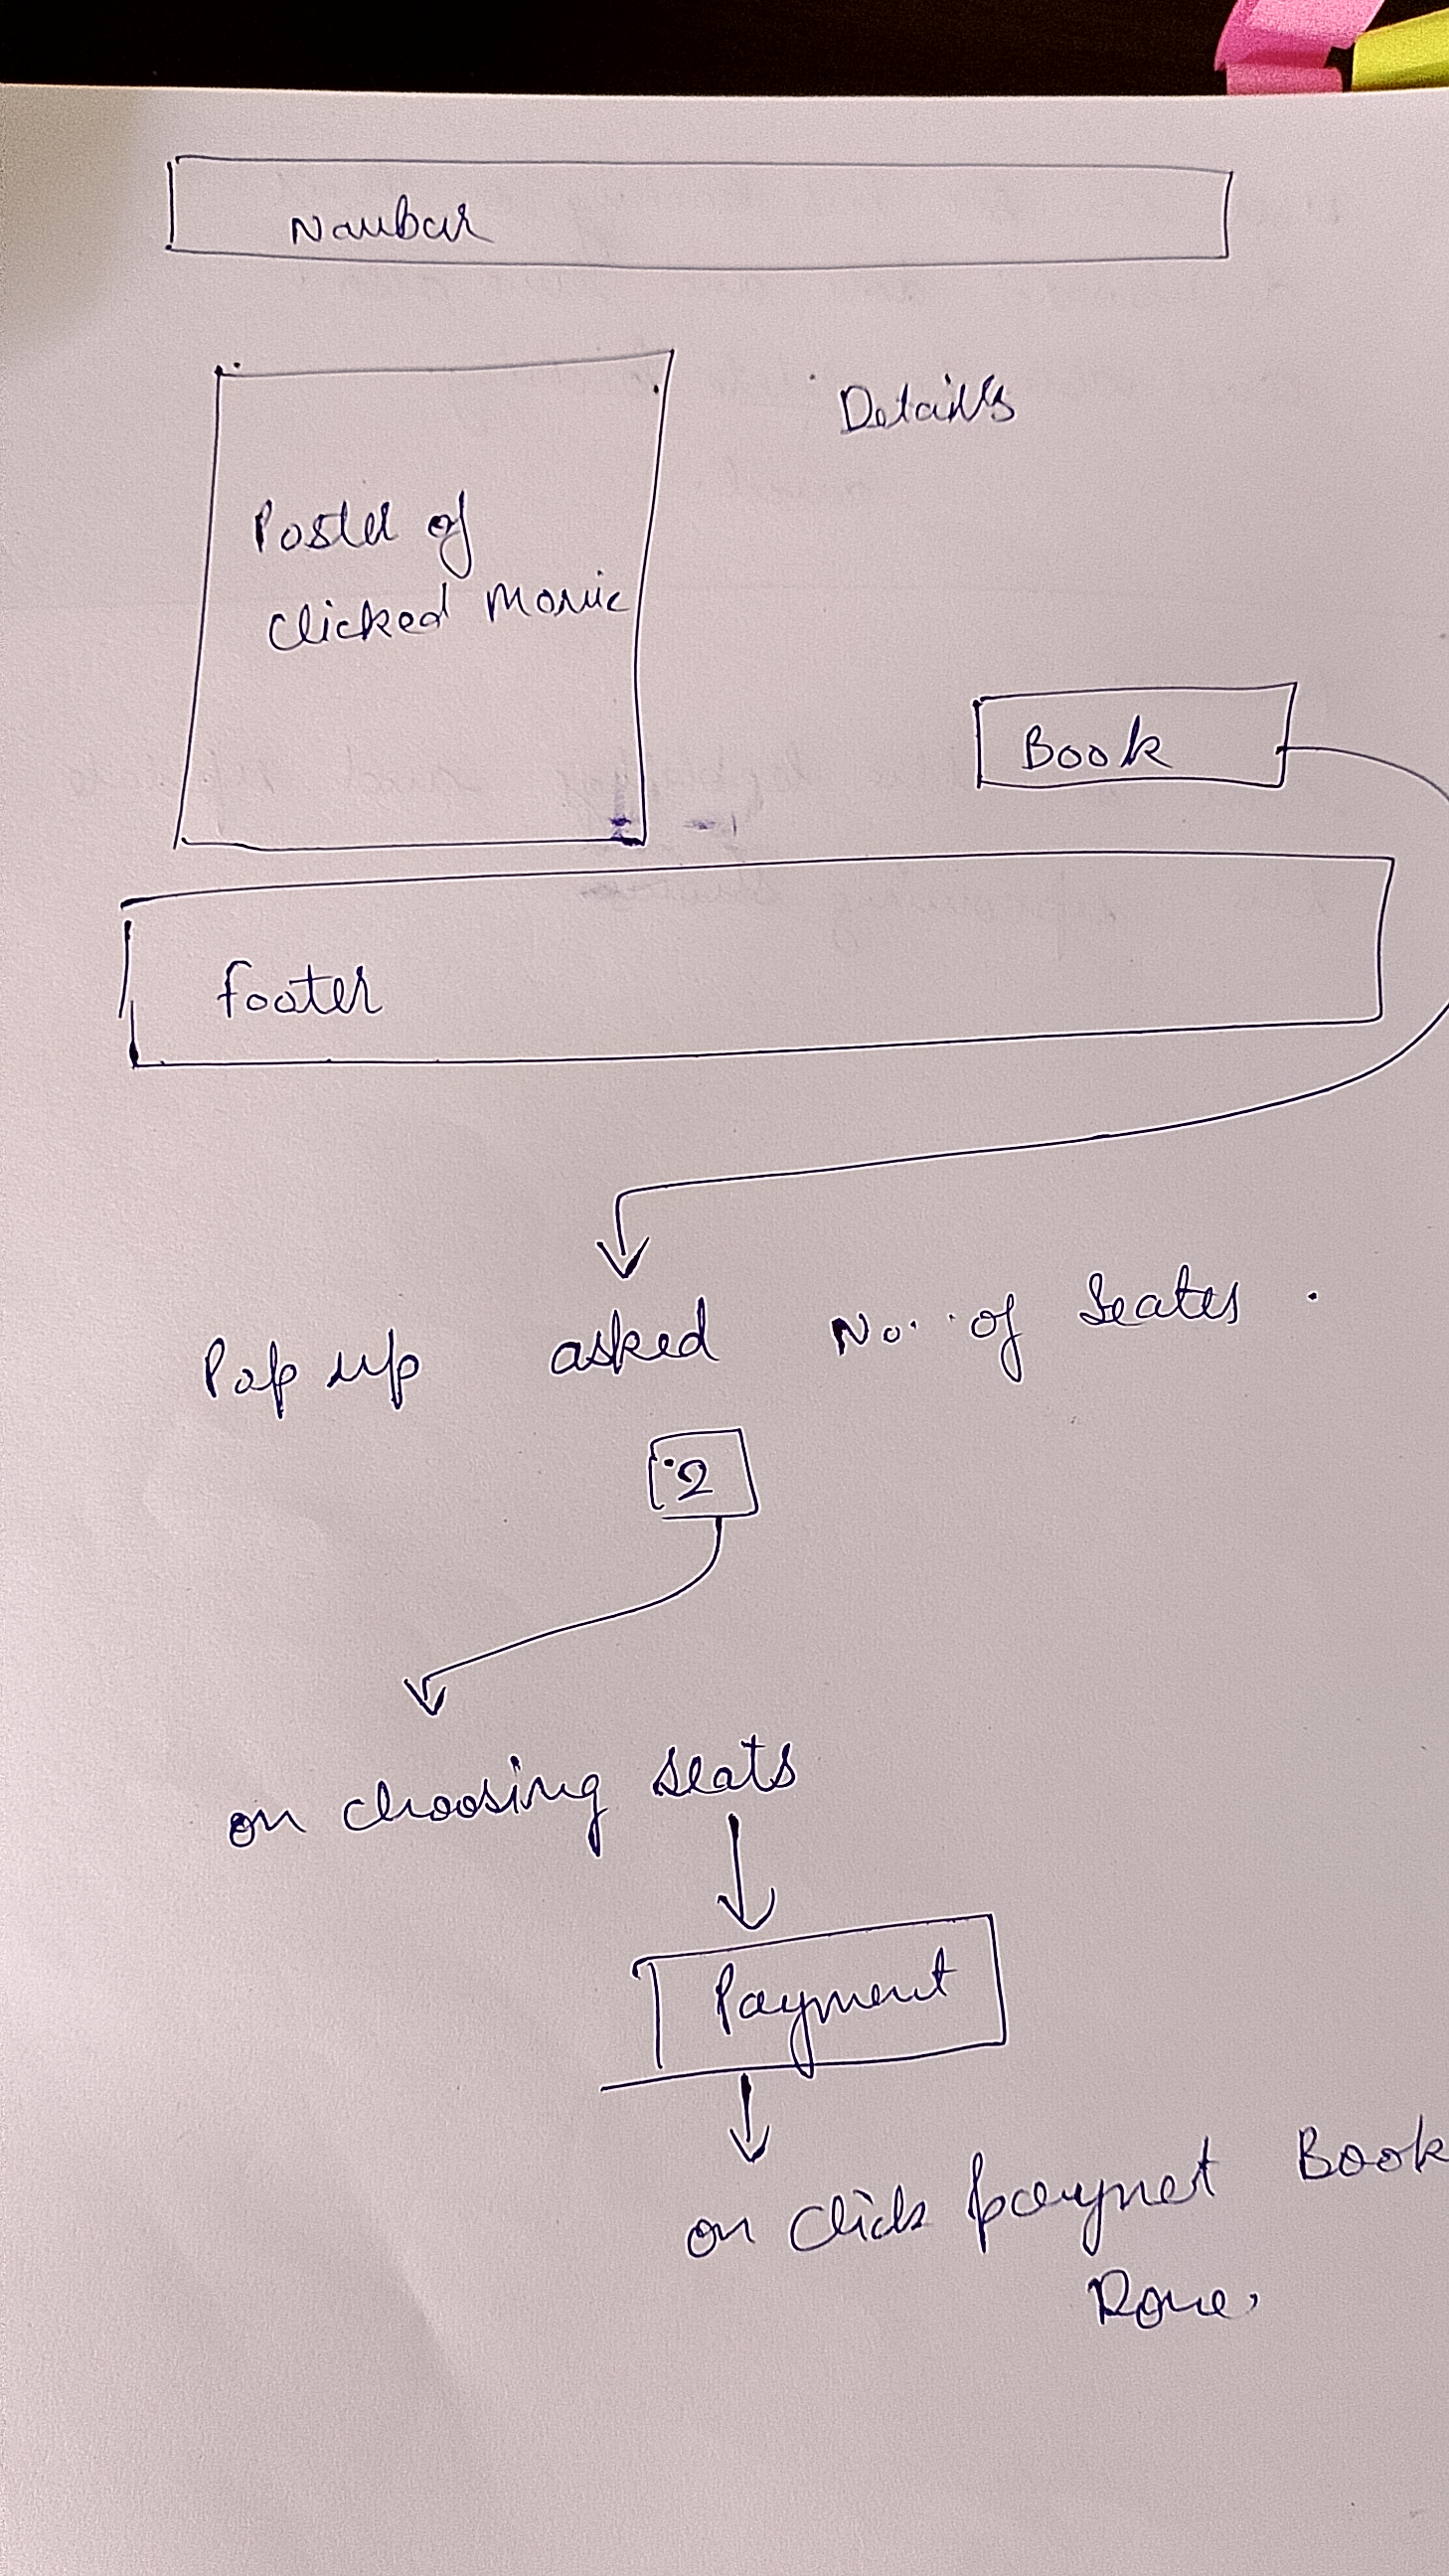 Navbar
Details
Poster of
clicked Movie
Book
footer
Pop up asked No. of Seates.
2
on choosing seats
Payment
on click paymet Book
Done.